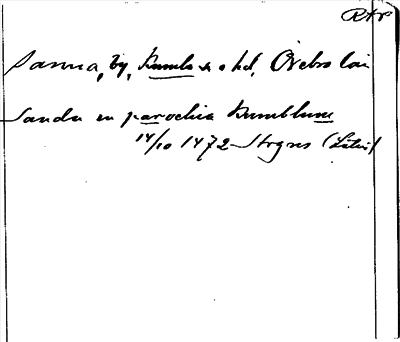 RAp
Sanna, by, Kumla s. o hd, Örebro län
Sanda in parochia Kumblum
14/10 1472 Strgns (Latin)